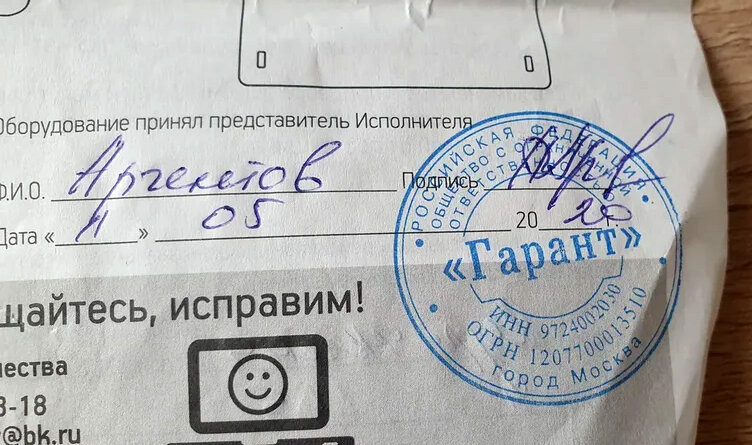 Оборудование принял представитель Исполнителя
Ф.И.О. Аргентов Подпись
Дата « 11 » 05 20 20
РОССИЙСКАЯ ФЕДЕРАЦИЯ
ОБЩЕСТВО С ОГРАНИЧЕННОЙ
ОТВЕТСТВЕННОСТЬЮ
«Гарант»
ИНН 9724002030
ОГРН 1207700013510
город Москва
щайтесь, исправим!
чества
3-18
@bk.ru